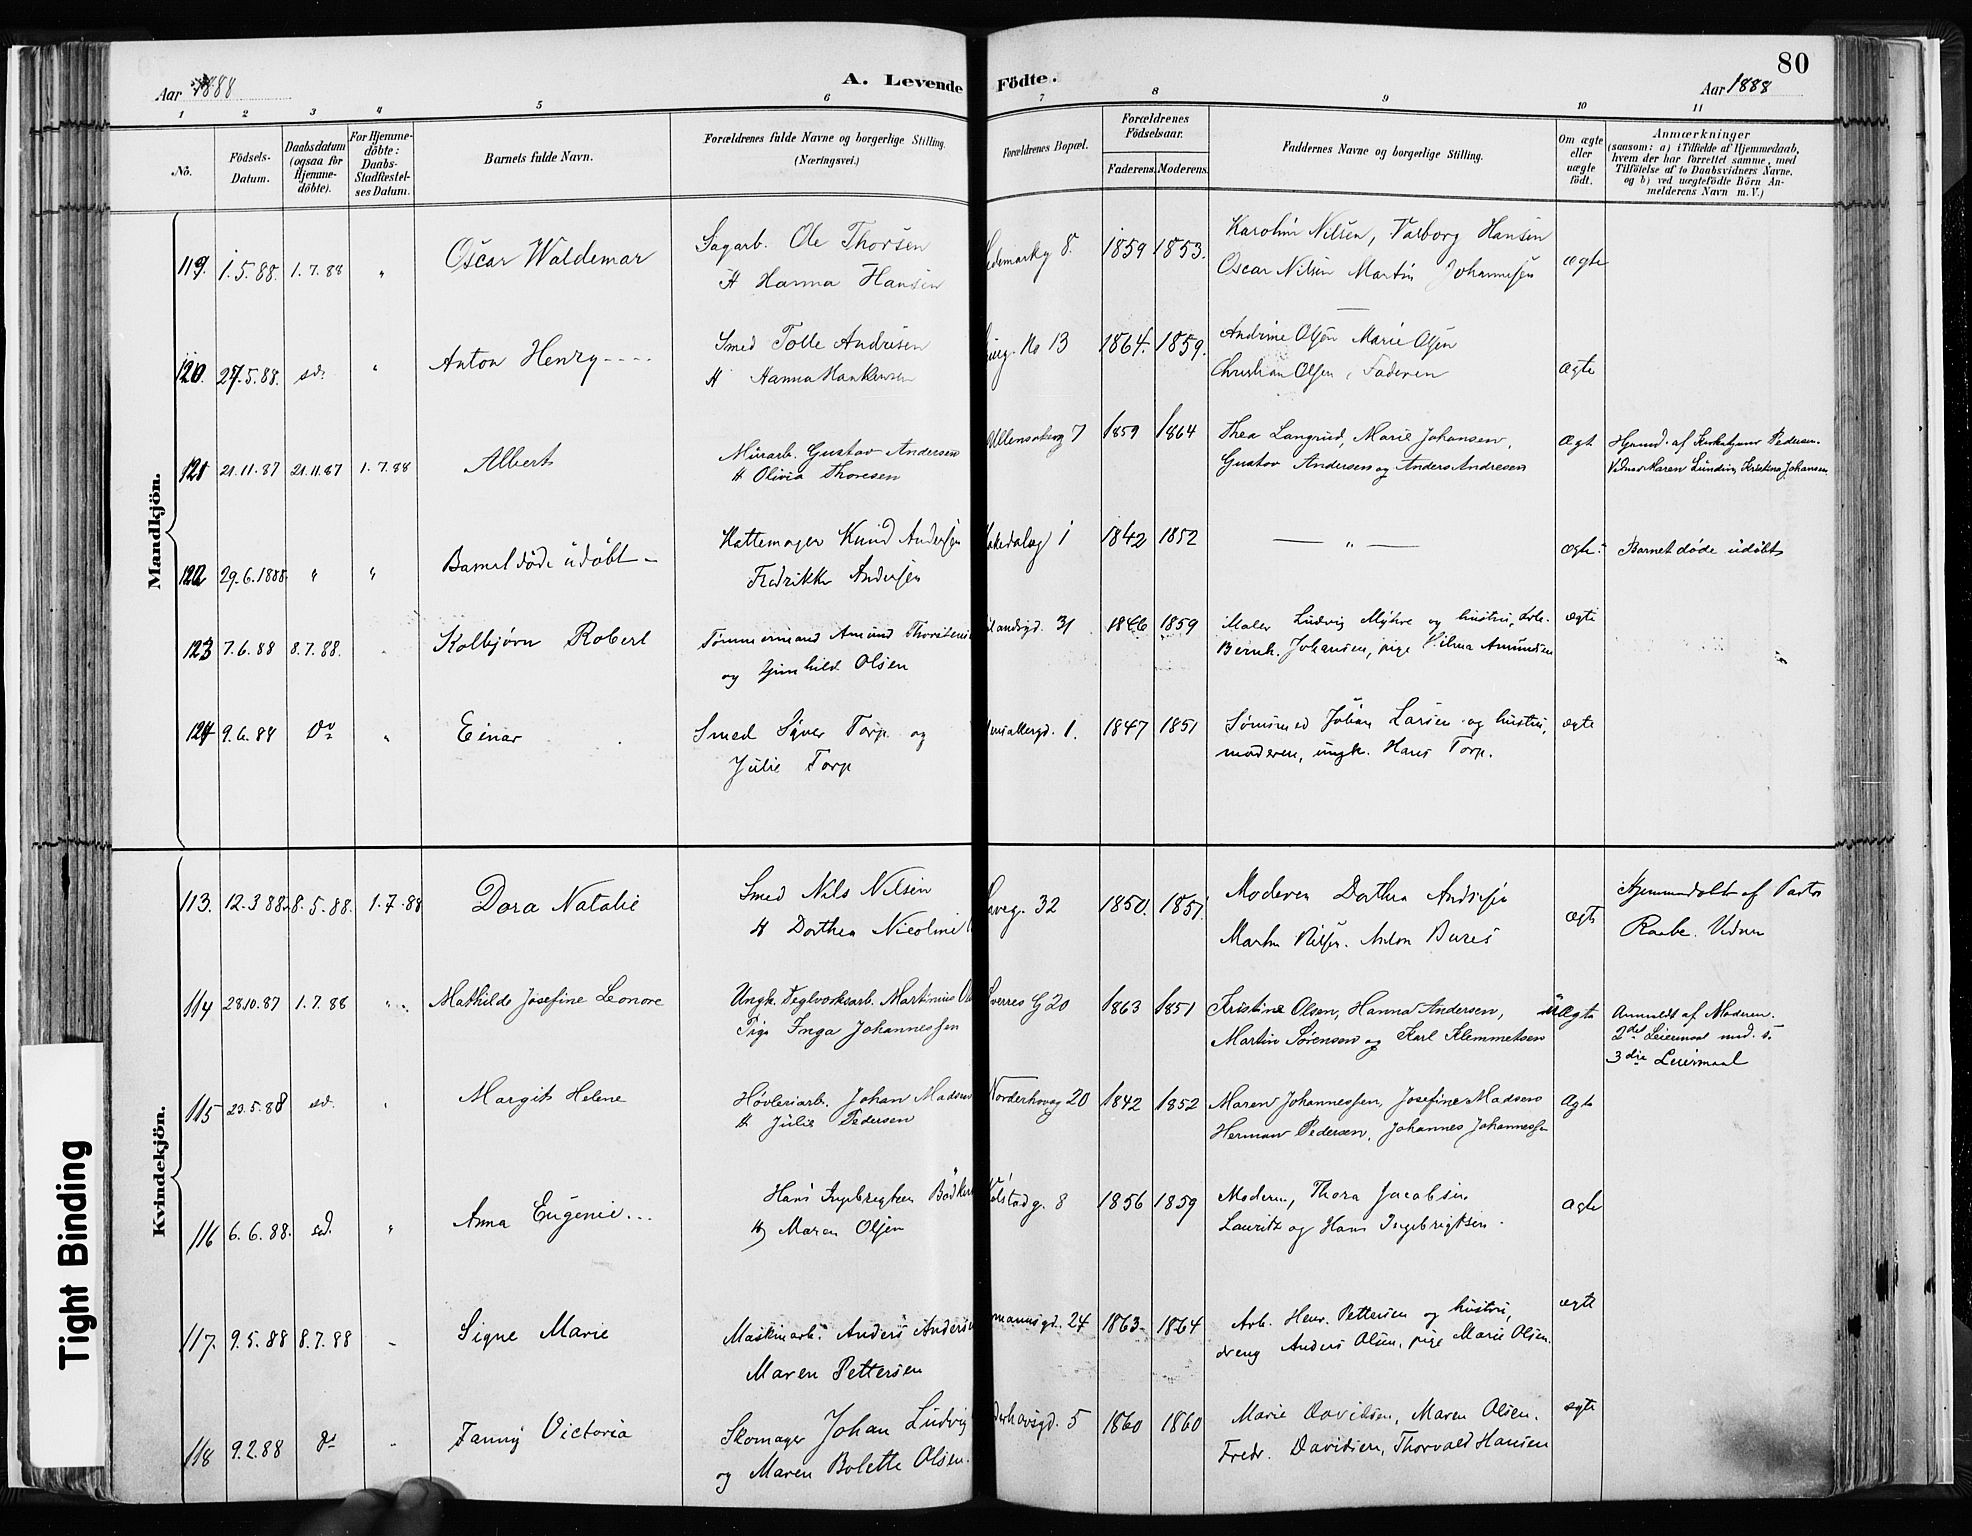 80
Aar 1888
A. Levende Födte.
Aar 1888
1 2 3 4 5 6 7 8 9 10 11
No.
Födsels-Datum.
Daabsdatum (ogsaa for Hjemme-döbte).
For Hjemme-döbte: Daabs-Stadfæstel-ses Datum.
Barnets fulde Navn.
Forældrenes fulde Navne og borgerlige Stilling. (Næringsvei.)
Forældrenes Bopæl.
Forældrenes Födselsaar.
Faderens. Moderens.
Faddernes Navne og borgerlige Stilling.
Om ægte eller uægte födt.
Anmærkninger
(saasom: a) i Tilfælde af Hjemmedaab,
hvem der har forrettet samme, med
Tilföielse af to Daabsvidners Navne,
og b) ved uægtefödte Börn An-
melderens Navn m. V.)
Mandkjön.
119. 1.5.88. 1.7.88 " Oscar Waldemar
Sagarb. Ole Thorsen
H Hanna Hansen
8. 1859 1853.
Karolin Nilsen, Valborg Hansen
Oscar Nilsen Martin Johannesen
ægte
120. 27.5.88. sd. " Anton Henry
Smed Tolle Andresen
H Hanna
No 13 1864. 1859.
Andrine Olsen Marie Olsen
Christian Olsen, Faderen
ægte
121 21.11.87 21.11.87 1.7.88 Albert
Murarb. Gustav Andersen
H Olivia Thoresen
Ullensakerg 7 1859 1864
Thea Langrud, Marie Johansen,
Gustav Andersen og Anders Andresen
Ægt
Hjemd. af Kirketjener Pedersen.
Vidner Maren Lundin, Kristine Johansen.
122 29.6.1888 " " Barnet døde udøbt –
Hattemager Knud Andersen
Fredrikke Andersen
1 1842 1852
— " —
ægte. Barnet døde udøbt
123 7.6.88 8.7.88. Kolbjørn Robert
Tømmermand Amund Thorstens
og Gunhild Olsen
31 1846 1859
Maler Ludvig Myhre og hustru, Arb.
Bernh. Johansen, pige Vilma Amundsen
ægte
124 9.6.88 Do " Einar
Smed Syver Torp og
Julie Torp
1. 1847 1851
Johan Larsen og hustru,
moderen, ungk. Hans Torp.
ægte
Kvindekjön.
113. 12.3 88. 8.5.88. 1.7.88 Dora Natalie
Smed Nils Nilsen
H Dorthea Nicoline
32 1850. 1851.
Moderen Dorthea Andresen
Martin Nilsen. Anton Bures
ægte
Hjemmedøbt af Pastor
Raabe. Vidner
114 28.10.87 1.7.88 " Mathilde Josefine Leonore
Ungk. Teglverksarb. Martinius Ol
Pige Inga Johannessen
Sverres G 20 1863 1851
Kristine Olsen, Hanna Andersen,
Martin Sørensen og Karl Klemmetsen
uÆgte
Anmeldt af Moderen.
2det Leiermaal med s.
3die Leiermaal
115 23.5.88 sd. Margit Helene
Høvleriarb. Johan Madsen
H Julie Pedersen
Norderhovg 20 1842 1852
Maren Johannessen, Josefine Madsen
Herman Pedersen, Johannes Johannessen
Ægte
116 6.6.88. sd. " Anna Eugenie
Hans Ingebrigtsen Bødker
H Maren Olsen
8 1856 1859
Moderen, Thora Jacobsen
Lauritz og Hans Ingebrigtsen.
ægte
117. 9.5.88 8.7.88 Signe Marie
Maskinarb. Anders Andersen
Maren Pettersen
24 1863 1864
Arb. Henr. Pettersen og hustru,
dreng Anders Olsen, pige Marie Olsen.
ægte
118 9.2.88 Do Fanny Victoria
Skomager Johan Ludvig
og Maren Bolette Olsen.
5 1860 1860
Marie Davidsen, Maren Olsen,
Fredr. Davidsen, Thorvald Hansen
ægte
Tight Binding